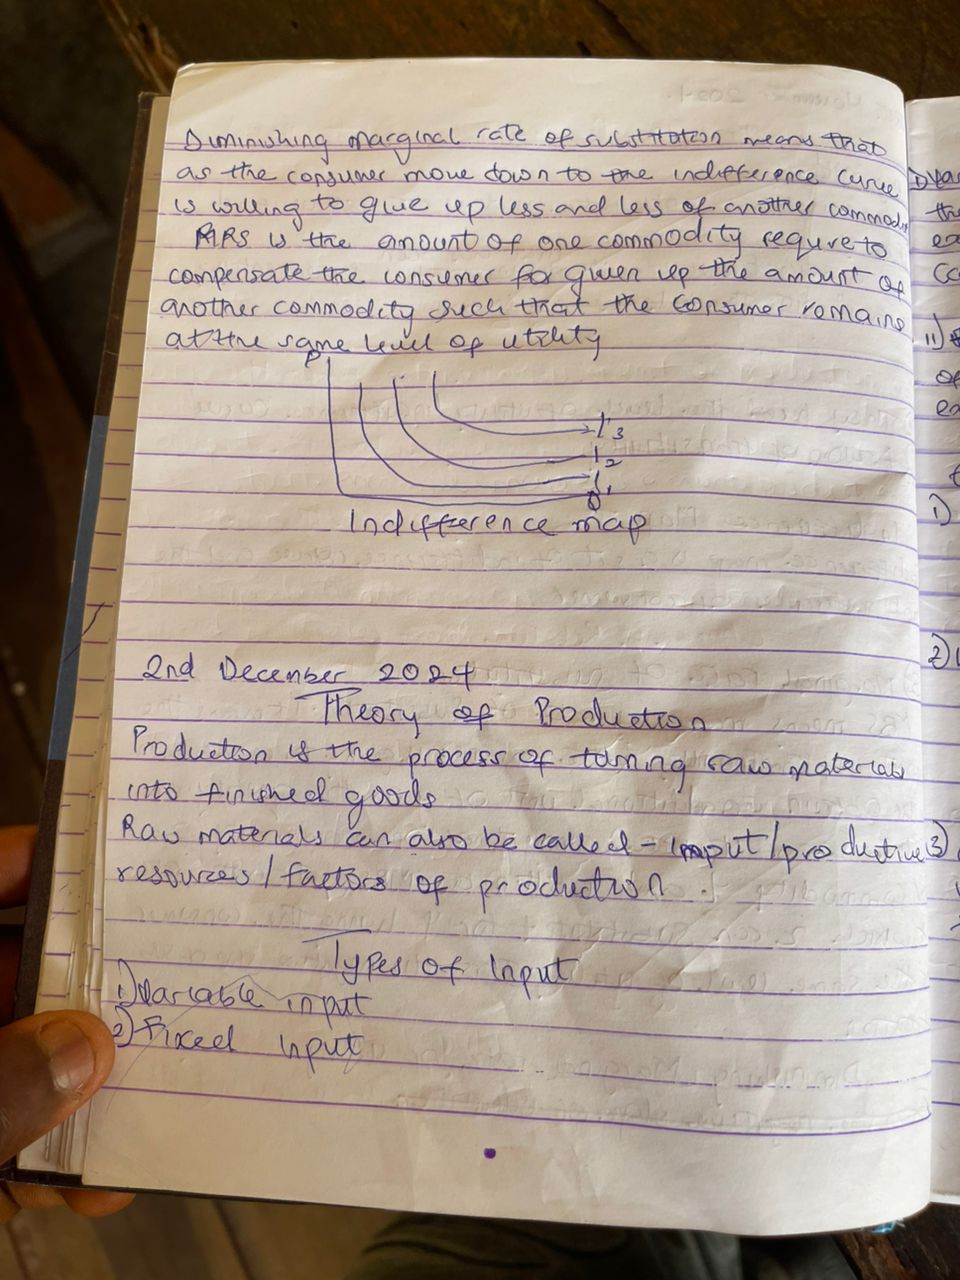 Diminishing marginal rate of substitution means that
as the consumer move down to the indifference curve
is willing to give up less and less of another commod
MRS is the amount of one commodity requre to
compensate the consumer for given up the amount of
another commodity such that the consumer romains
at the same level of utility
P
I3
I2
I1
Q
Indifference map
2nd December 2024
Theory of Production
Production is the process of turning raw materials
into finished goods
Raw materials can also be called - input/productive
resources/factors of production.
Types of Input
1) Variable input
2) Fixed input
the
ex
11)
of
ex
1)
2)
3)